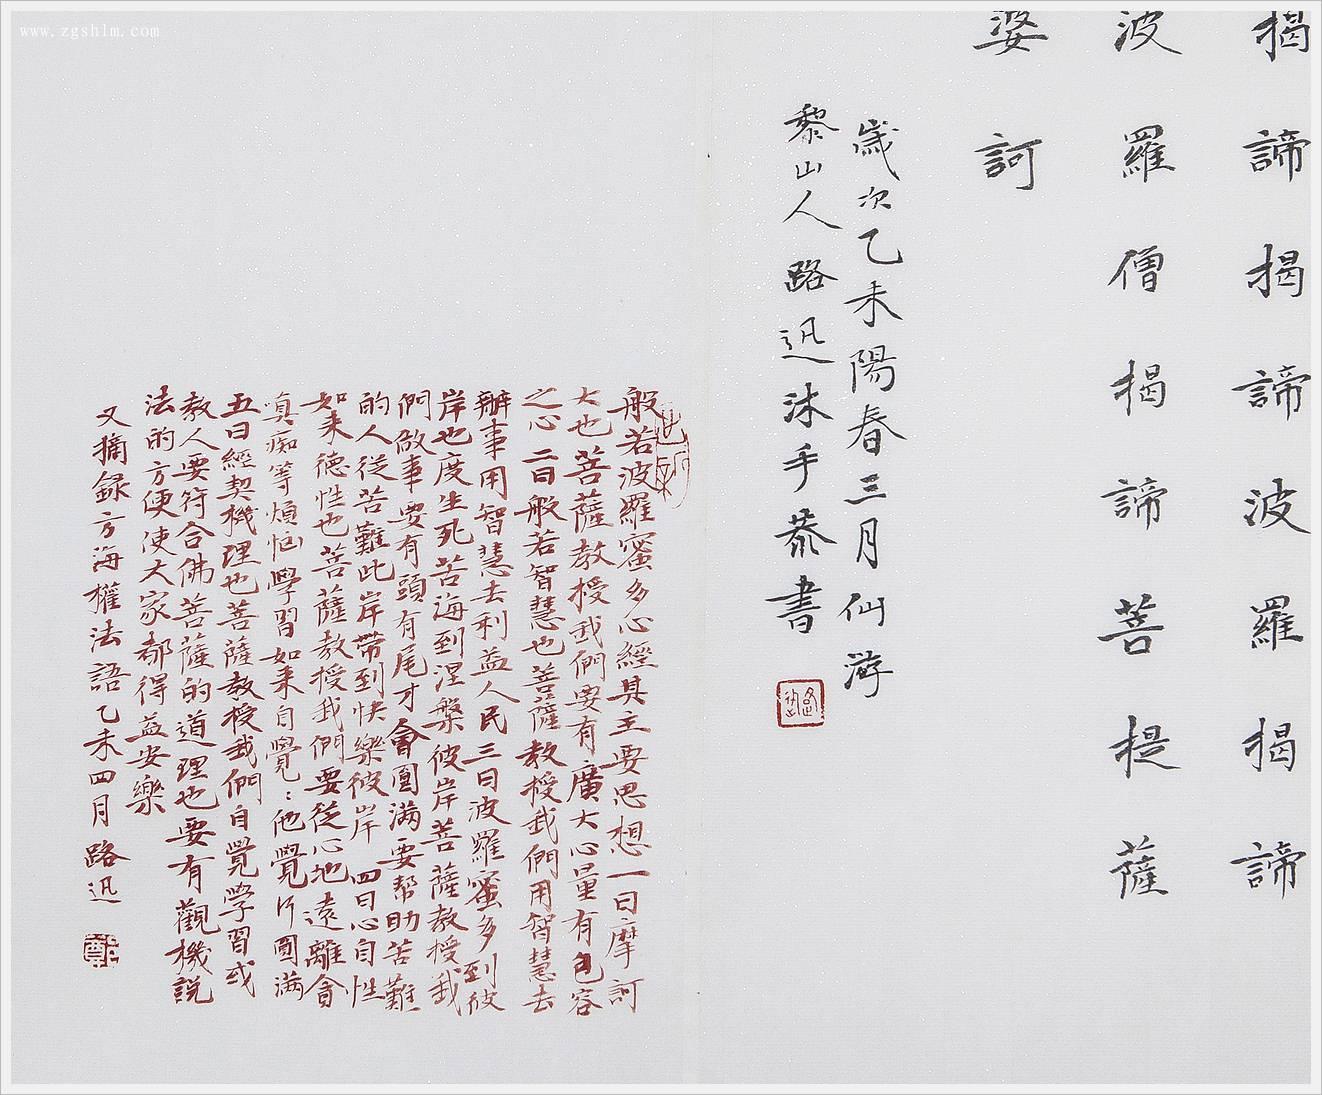 www.zgshlm.com
揭諦揭諦波羅揭諦
波羅僧揭諦菩提薩
婆訶
歲次乙未陽春三月仙游
黎山人路迅沐手恭書
般若波羅蜜多心經其主要思想一曰摩訶
大也菩薩教授我們要有廣大心量有包容
之心二曰般若智慧也菩薩教授我們用智慧去
辦事用智慧去利益人民三曰波羅蜜多到彼
岸也度生死苦海到涅槃彼岸菩薩教授我
們做事要有頭有尾才會圓满要帮助苦難
的人從苦難此岸帶到快樂彼岸四曰心自性
如来德性也菩薩教授我們要從心地遠離貪
嗔痴等煩惱學習如来自覺:他覺行圓满
五曰經契機理也菩薩教授我們自覺學習或
教人要符合佛菩薩的道理也要有觀機說
法的方便使大家都得益安樂
又摘録方海權法語乙未四月路迅